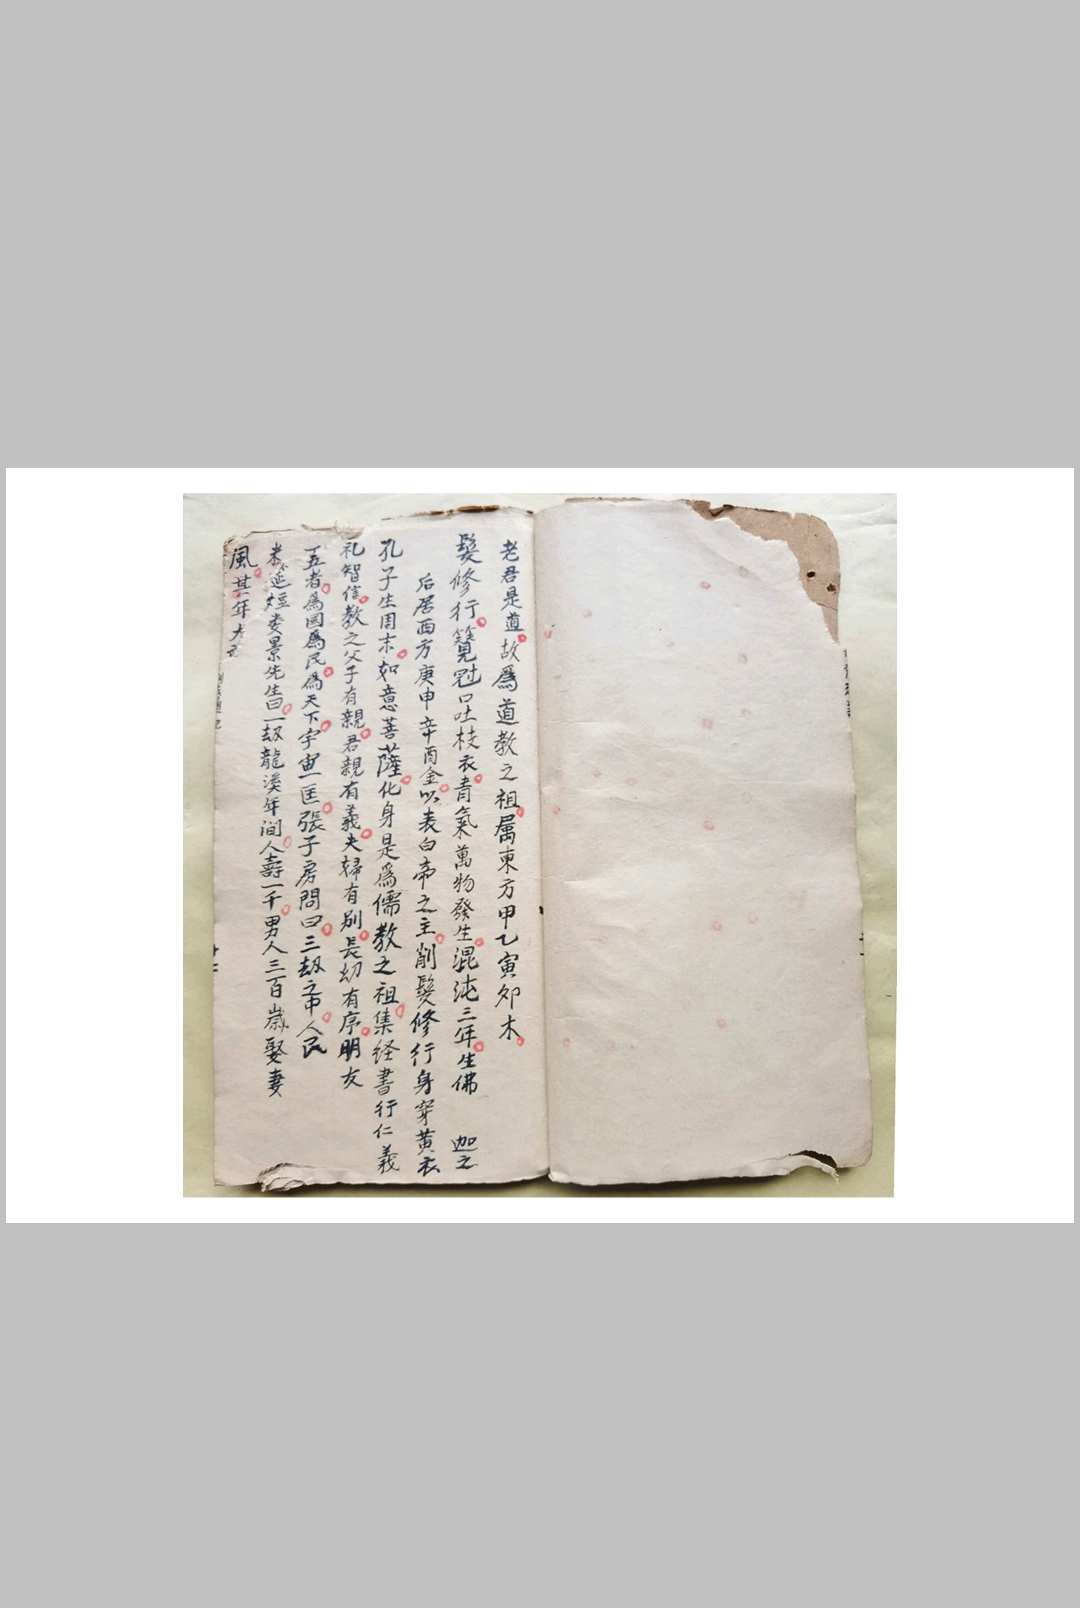 老君是道故為道教之祖属東方甲乙寅夘木
髮修行簪冠口吐枝衣青氣萬物發生混沌三年生佛 迦之
后居西方庚申辛酉金以表白帝之主削髮修行身穿黃衣
孔子生周末如意菩薩化身是為儒教之祖集経書行仁義
礼智信教之父子有親君親有義夫婦有別長幼有序朋友
五者為國為民為天下宇宙一匡張子房問曰三刼之中人民
先生曰一刼龍漢年间人壽一千男人三百歲娶妻
風其年